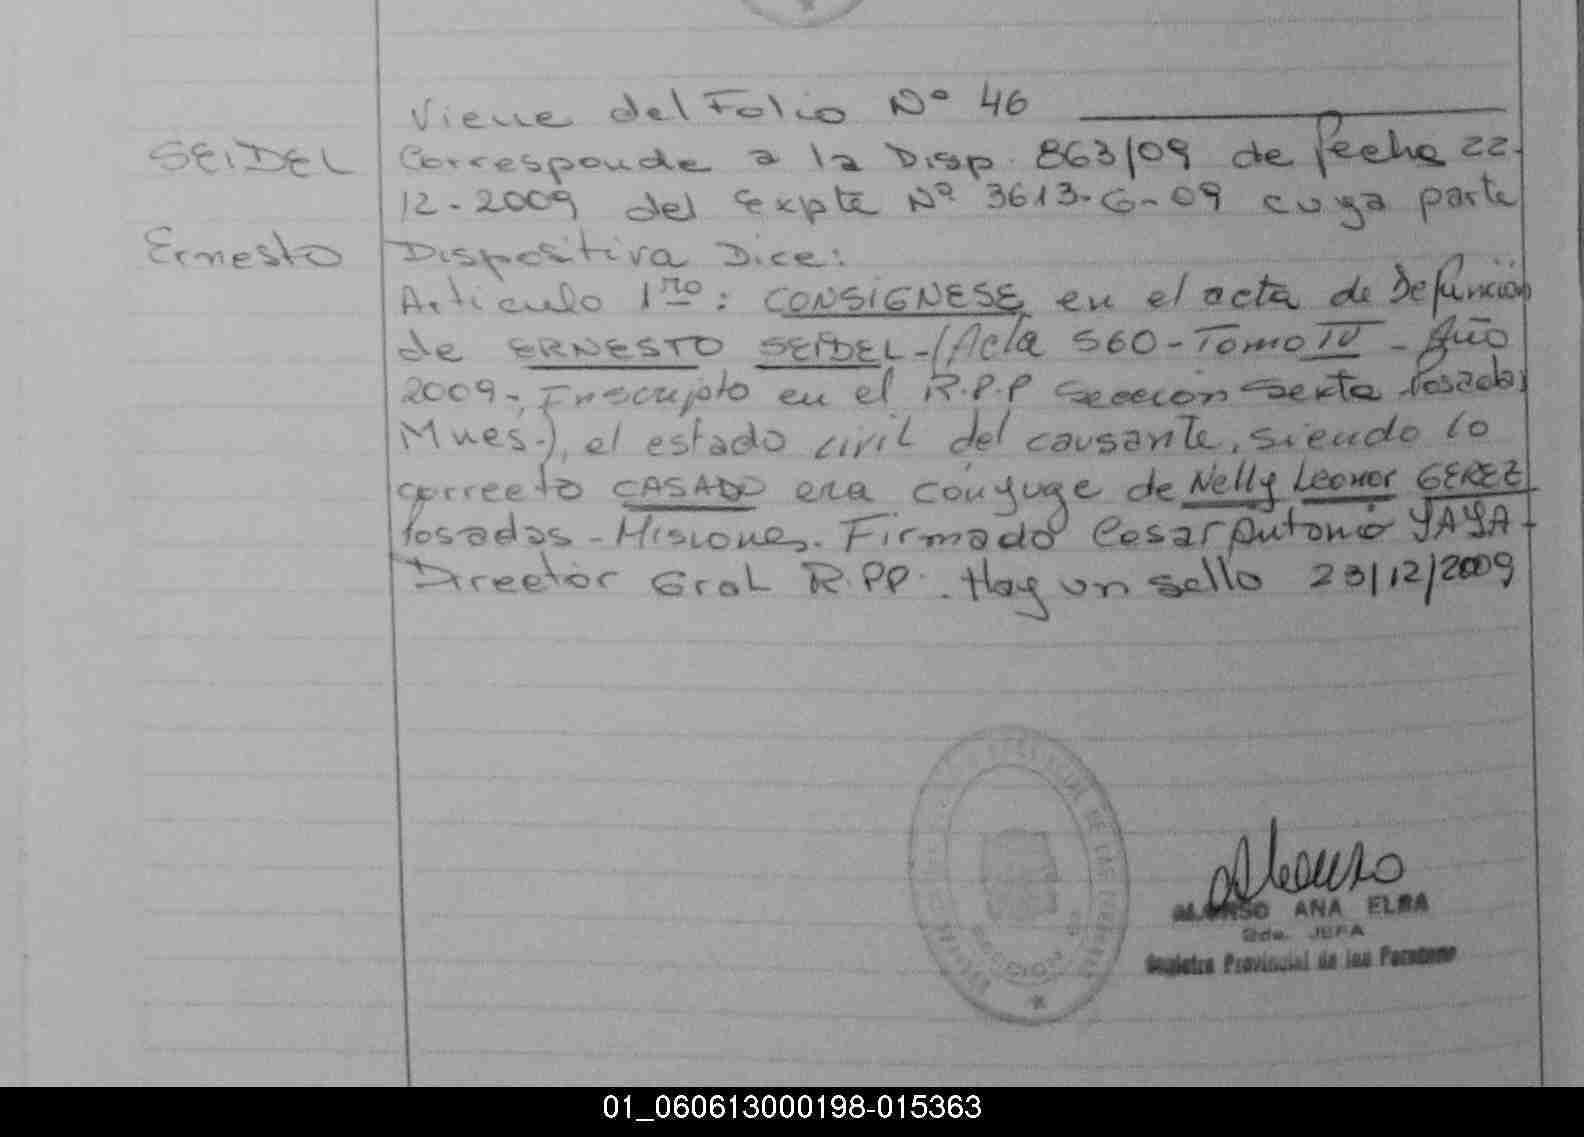 Viene del Folio Nº 46
SEIDEL Corresponde a la Disp. 863/09 de fecha 22-
12-2009 del Expte Nº 3613-G-09 cuya parte
Ernesto Dispositiva Dice:
Articulo 1ro: CONSIGNESE en el acta de Defunción
de ERNESTO SEIDEL-(Acta 560-Tomo IV- Año
2009-, Inscripto en el R.P.P Sección Sexta Posadas
Mnes.), el estado civil del causante, siendo lo
correcto CASADO era conyuge de Nelly Leonor GEREZ
Posadas-Misiones. Firmado Cesar Antonio YAYA-
Director Gral R.PP. Hay un sello 23/12/2009
ALONSO ANA ELBA
JEFA
Registro Provincial de las Personas
01_060613000198-015363